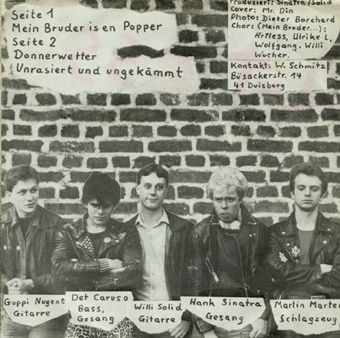 Seite 1
Mein Bruder is en Popper
Seite 2
Donnerwetter
Unrasiert und ungekämmt
Produziert: Sinatra/Solid
Cover: Mr. Din
Photo: Dieter Borchard
Chor: (Mein Bruder...):
Ulrike L,
Wolfgang, Willi
Wucher.
Kontakt: W. Schmitz
Büsackerstr. 14
41 Duisburg
Guppi Nugent
Gitarre
Det Caruso
Bass,
Gesang
Willi Solid
Gitarre
Hank Sinatra
Gesang
Martin Marten
Schlagzeug